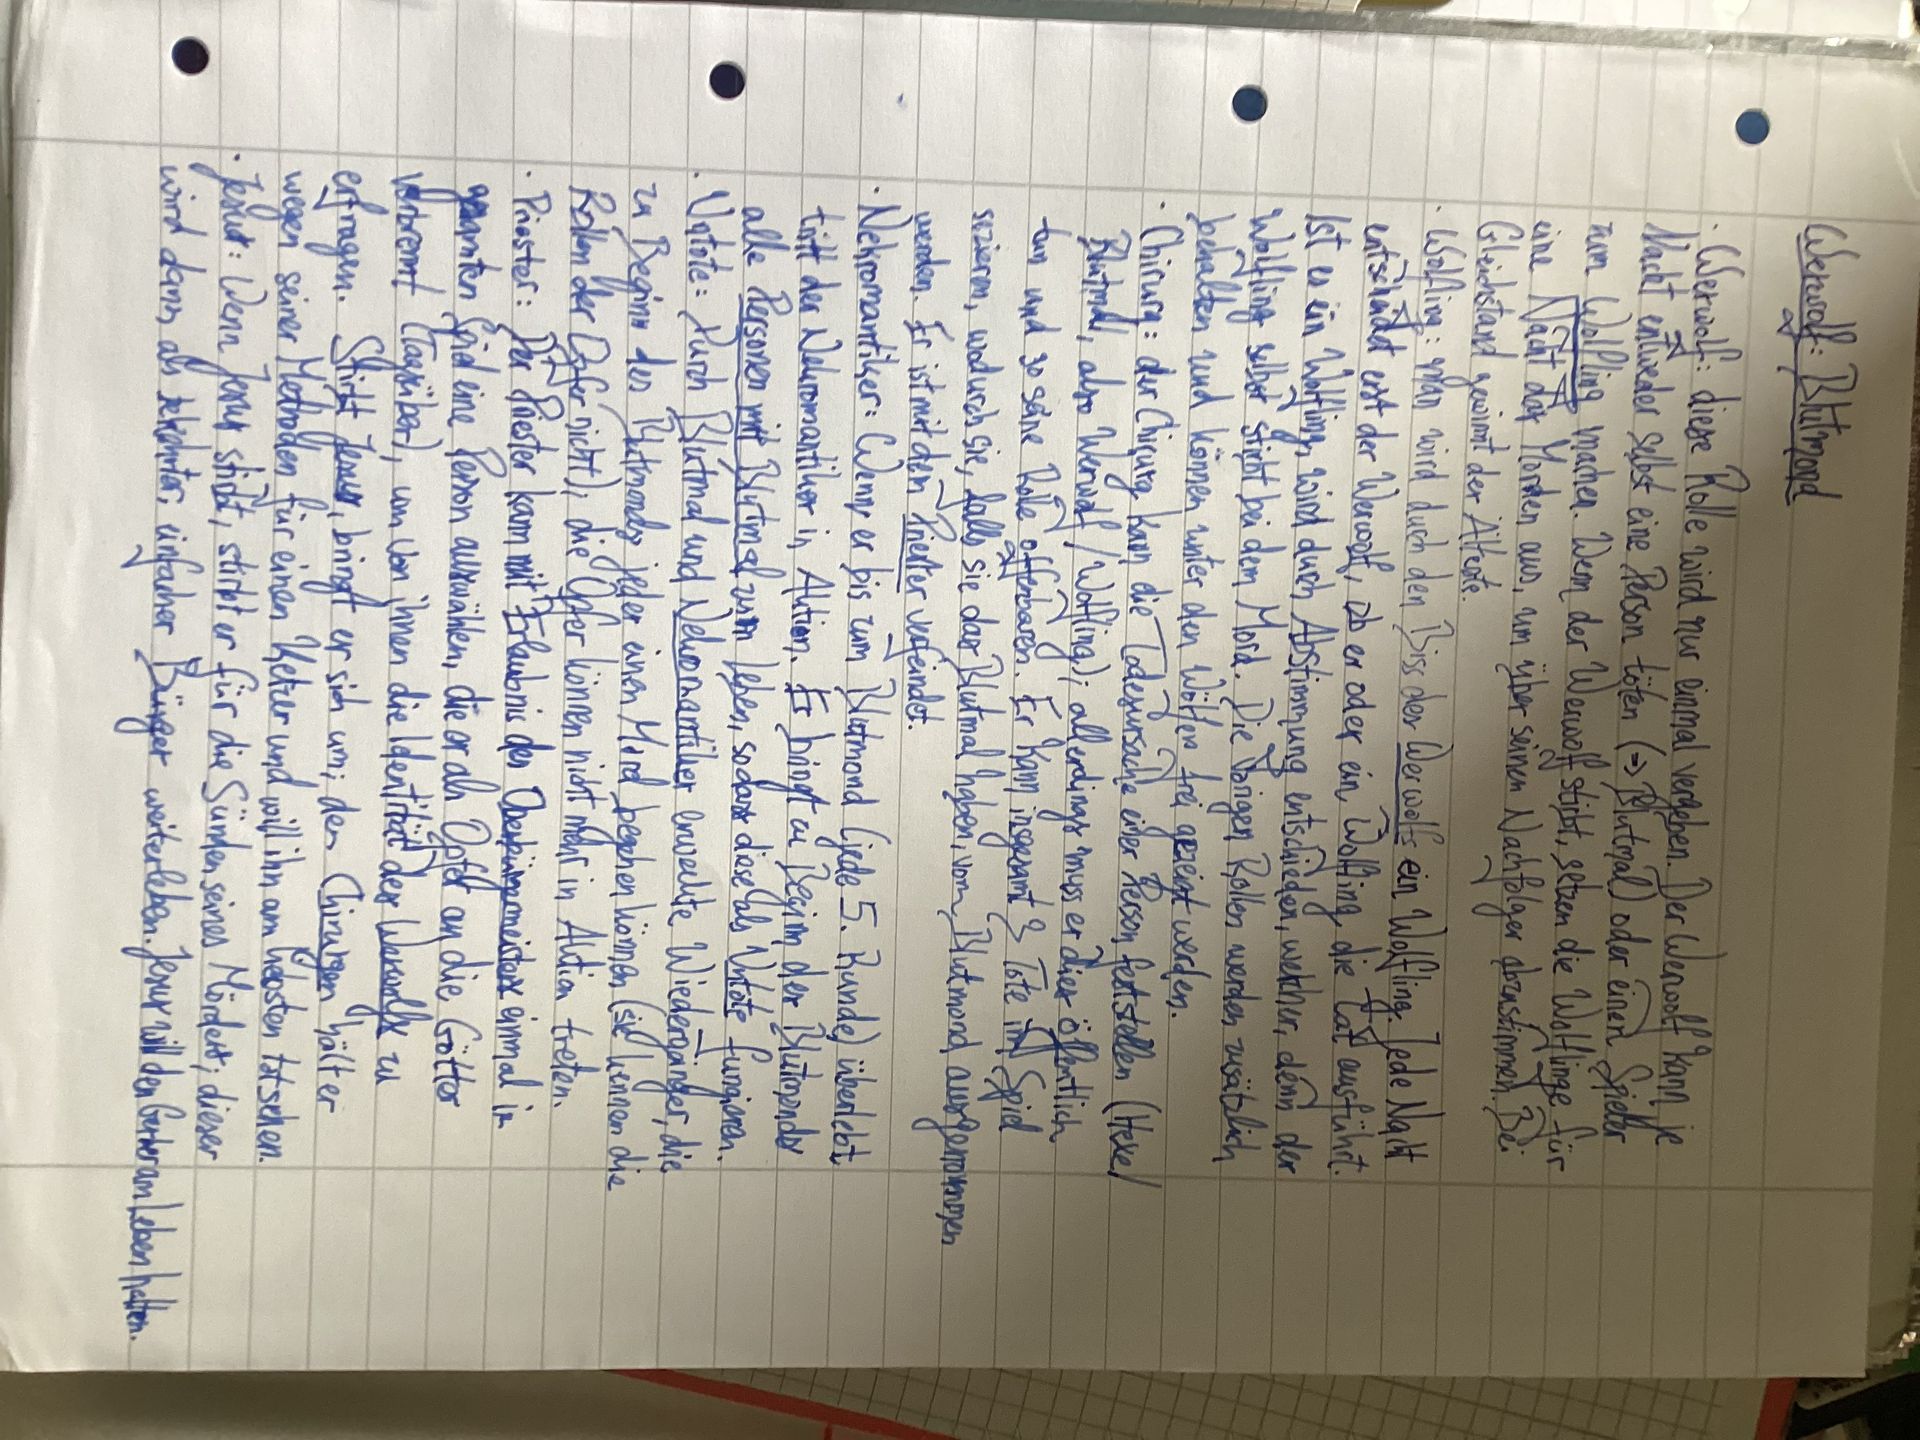 Werwolf: Blutmond
· Werwolf: diese Rolle wird nur einmal vergeben. Der Werwolf kann je
Nacht entweder selbst eine Person töten (=> Blutmal) oder einen Spieler
zum Wolfling machen. Wenn der Werwolf stirbt, setzen die Wolflinge für
eine Nacht das Morden aus, um über seinen Nachfolger abzustimmen. Bei
Gleichstand gewinnt der Älteste.
· Wolfling: man wird durch den Biss des Werwolfs ein Wolfling. Jede Nacht
entscheidet erst der Werwolf, ob er oder ein Wolfling die Tat ausführt.
Ist es ein Wolfling, wird durch Abstimmung entschieden, welcher, denn der
Wolfling selbst stirbt bei dem Mord. Die vorigen Rollen werden zusätzlich
behalten und können unter den Wölfen frei gezeigt werden.
· Chirurg: der Chirurg kann die Todesursache einer Person feststellen (Hexe/
Blutmal, also Werwolf/Wolfling); allerdings muss er dies öffentlich
tun und so seine Rolle offenbaren. Er kann insgesamt 3 Tote im Spiel
sezieren, wodurch sie, falls sie das Blutmal haben, vom Blutmond ausgenommen
werden. Er ist mit dem Priester verfeindet.
· Nekromantiker: Wenn er bis zum Blutmond (jede 5. Runde) überlebt,
tritt der Nekromantiker in Aktion. Er bringt zu Beginn des Blutmondes
alle Personen mit Blutmal zum Leben, sodass diese als Untote fungieren.
· Untote: Durch Blutmal und Nekromantiker erweckte Wiedergänger, die
zu Beginn des Blutmondes jeder einen Mord begehen können (sie kennen die
Rollen der Opfer nicht), die Opfer können nicht mehr in Aktion treten.
· Priester: Der Priester kann mit Erlaubnis des einmal im
gesamten Spiel eine Person auswählen, die er als Opfer an die Götter
verbrennt (tagsüber), um von ihnen die Identität des Werwolfs zu
erfragen. Stirbt Jesus, bringt er sich um; den Chirurgen hält er
wegen seiner Methoden für einen Ketzer und will ihn am liebsten tot sehen.
· Jesus: Wenn Jesus stirbt, stirbt er für die Sünden seines Mörders; dieser
wird dann als bekehrter, einfacher Bürger weiterleben. Jesus will den am Leben halten.